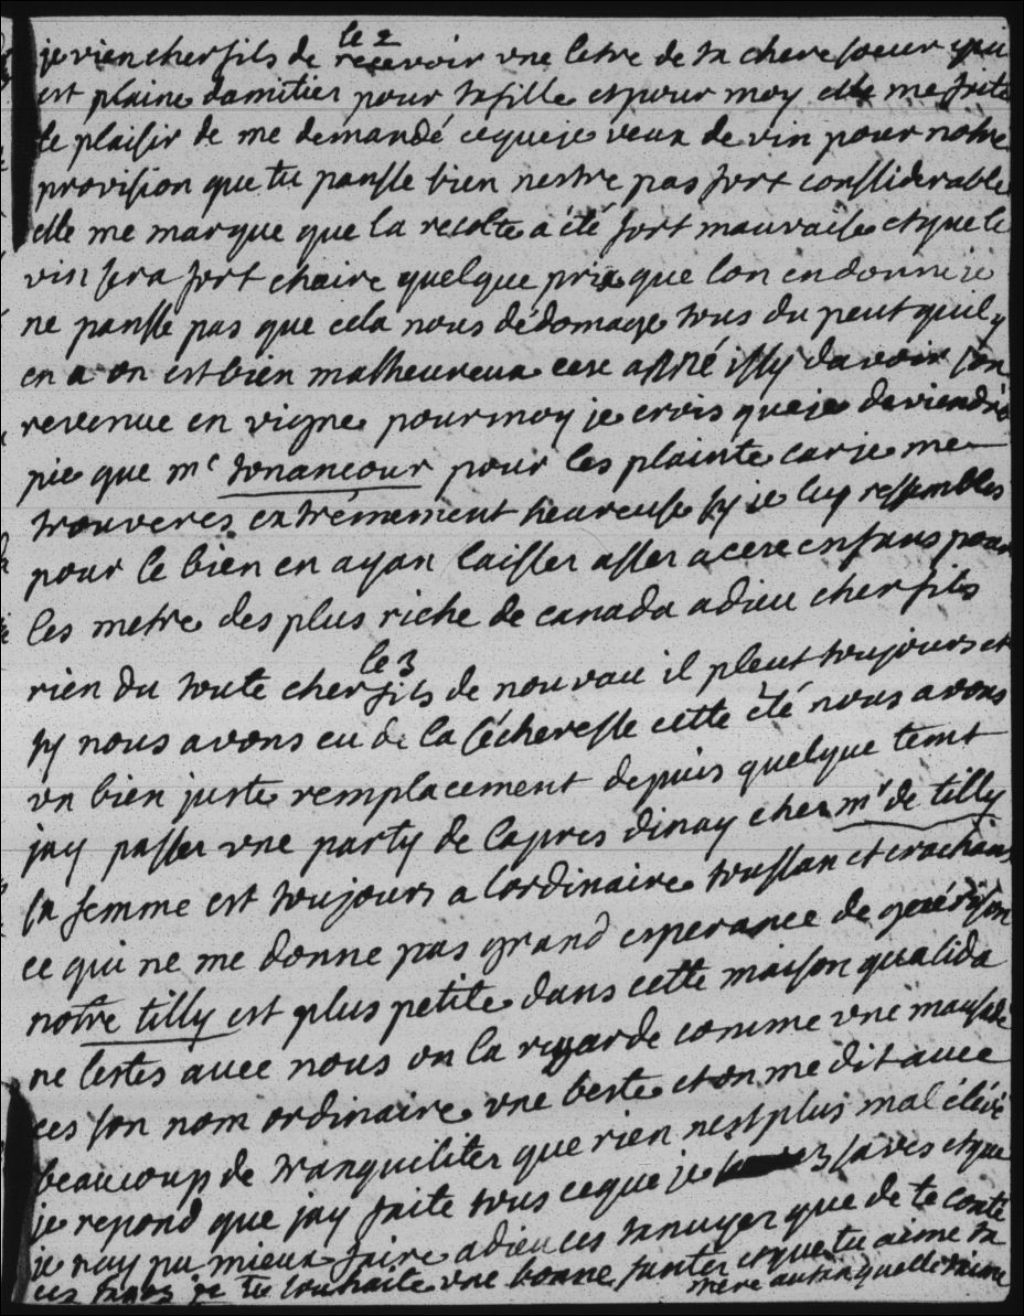 le 2
je vien cher fils de recevoir une letre de ta chere soeur qui
est plaine damitier pour ta fille et pour moy elle me faite
le plaisir de me demandé ceque je veux de vin pour notre
provision que tu pansse bien nestre pas fort conssiderable
elle me marque que la recolte a été fort mauvaise et que le
vin sera fort chaire quelque prix que lon en donne je
ne pansse pas que cela nous dédomage tous du peut quil y
en a on est bien malheureux cere anné issy davoir son
revenue en vigne pour moy je crois que je deviendré
pie que mr tonancour pour les plainte car je me
trouveres extrémement heureuse sy je luy ressembles
pour le bien en ayan laisser asser a cere enfans pour
les metre des plus riche de canada adieu cher fils
le 3
rien du toute cher fils de nouvau il pleut toujours et
sy nous avons eu de la sécheresse cette été nous avons
un bien juste remplacement depuis quelque temt
jay passer une party de lapres dinay cher mr de tilly
sa femme est toujours a lordinaire toussan et crachant
ce qui ne me donne pas grand esperance de guérison
notre tilly est plus petite dans cette maison qualida
ne lestes avec nous on la regarde comme une maussade
ces son nom ordinaire une beste et on me dit avec
beaucoup de tranquiliter que rien nest plus mal élevé
je repond que jay faite tous ceque je saves et que
je nay pu mieux faire adieu ces tanuyer que de te conté
ces je te souhaite une bonne santer et que tu aime ta
mere autan quelle taime